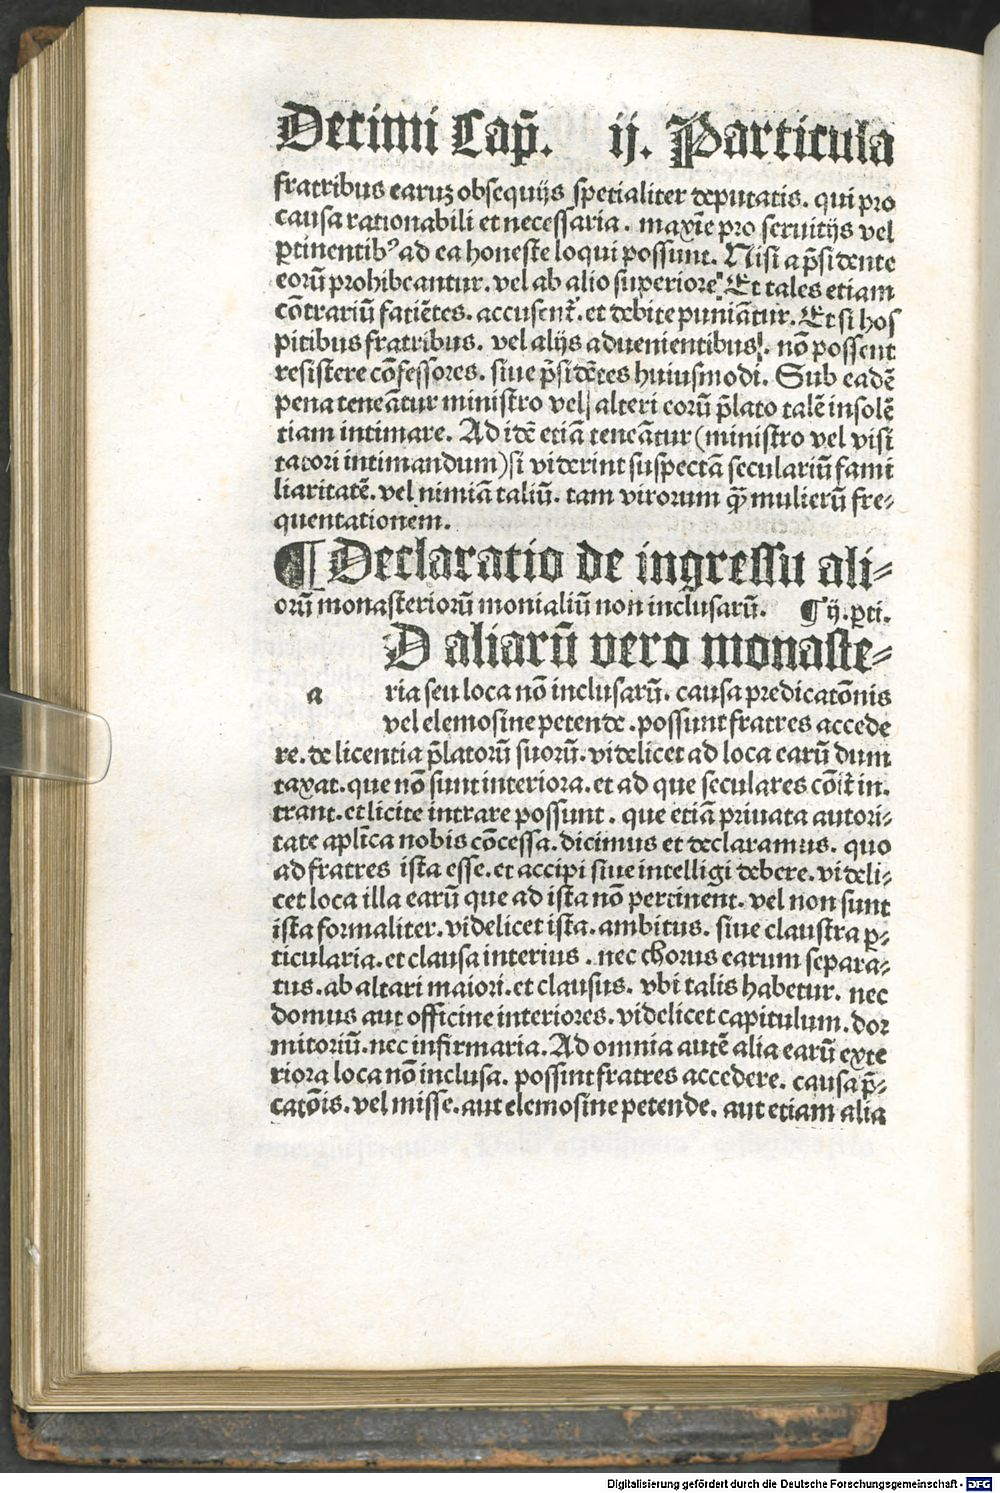 Decimi Cap̄. ij. Particula
fratribus earuꝫ obsequijs specialiter deputatis. qui pro
causa rationabili et necessaria. maxīe pro seruitijs vel
ꝑtinentibꝰ ad ea honeste loqui possunt. Nisi a p̄sidente
eorū prohibeantur. vel ab alio superiore. Et tales etiam
cōtrariū faciētes. accusent᷑. et debite puniātur. Et si hos
pitibus fratribus. vel alijs aduenientibus. nō possent
resistere cōfessores. siue p̄sidētes huiusmodi. Sub eadē
pena teneātur ministro vel alteri eorū p̄lato talē insolē
tiam intimare. Ad idē etiā teneātur (ministro vel visi
tatori intimandum) si viderint suspectā seculariū fami
liaritatē. vel nimiā taliū. tam virorum qȝ mulierū fre⸗
quentationem.
¶ Declaratio de ingressu ali⸗
orū monasteriorū monialiū non inclusarū. ¶ ij. ꝑti.
D aliarū vero monaste⸗
a ria seu loca nō inclusarū. causa predicatōnis
vel elemosine petende. possunt fratres accede
re. de licentia p̄latorū suorū. videlicet ad loca earū dum
taxat. que nō sunt interiora. et ad que seculares cōit᷑ in.
trant. et licite intrare possunt. que etiā priuata autori⸗
tate aplīca nobis cōcessa. dicimus et declaramus. quo
ad fratres ista esse. et accipi siue intelligi debere. videli⸗
cet loca illa earū que ad ista nō pertinēt. vel non sunt
ista formaliter. videlicet ista. ambitus. siue claustra ꝑ⸗
ticularia. et clausa interius. nec chorus earum separa⸗
tus. ab altari maiori. et clausus. vbi talis habetur. nec
domus aut officine interiores. videlicet capitulum. dor
mitoriū. nec infirmaria. Ad omnia autē alia earū exte
riora loca nō inclusa. possint fratres accedere. causa p̄⸗
catōis. vel misse. aut elemosine petende. aut etiam alia
Digitalisierung gefördert durch die Deutsche Forschungsgemeinschaft - DFG